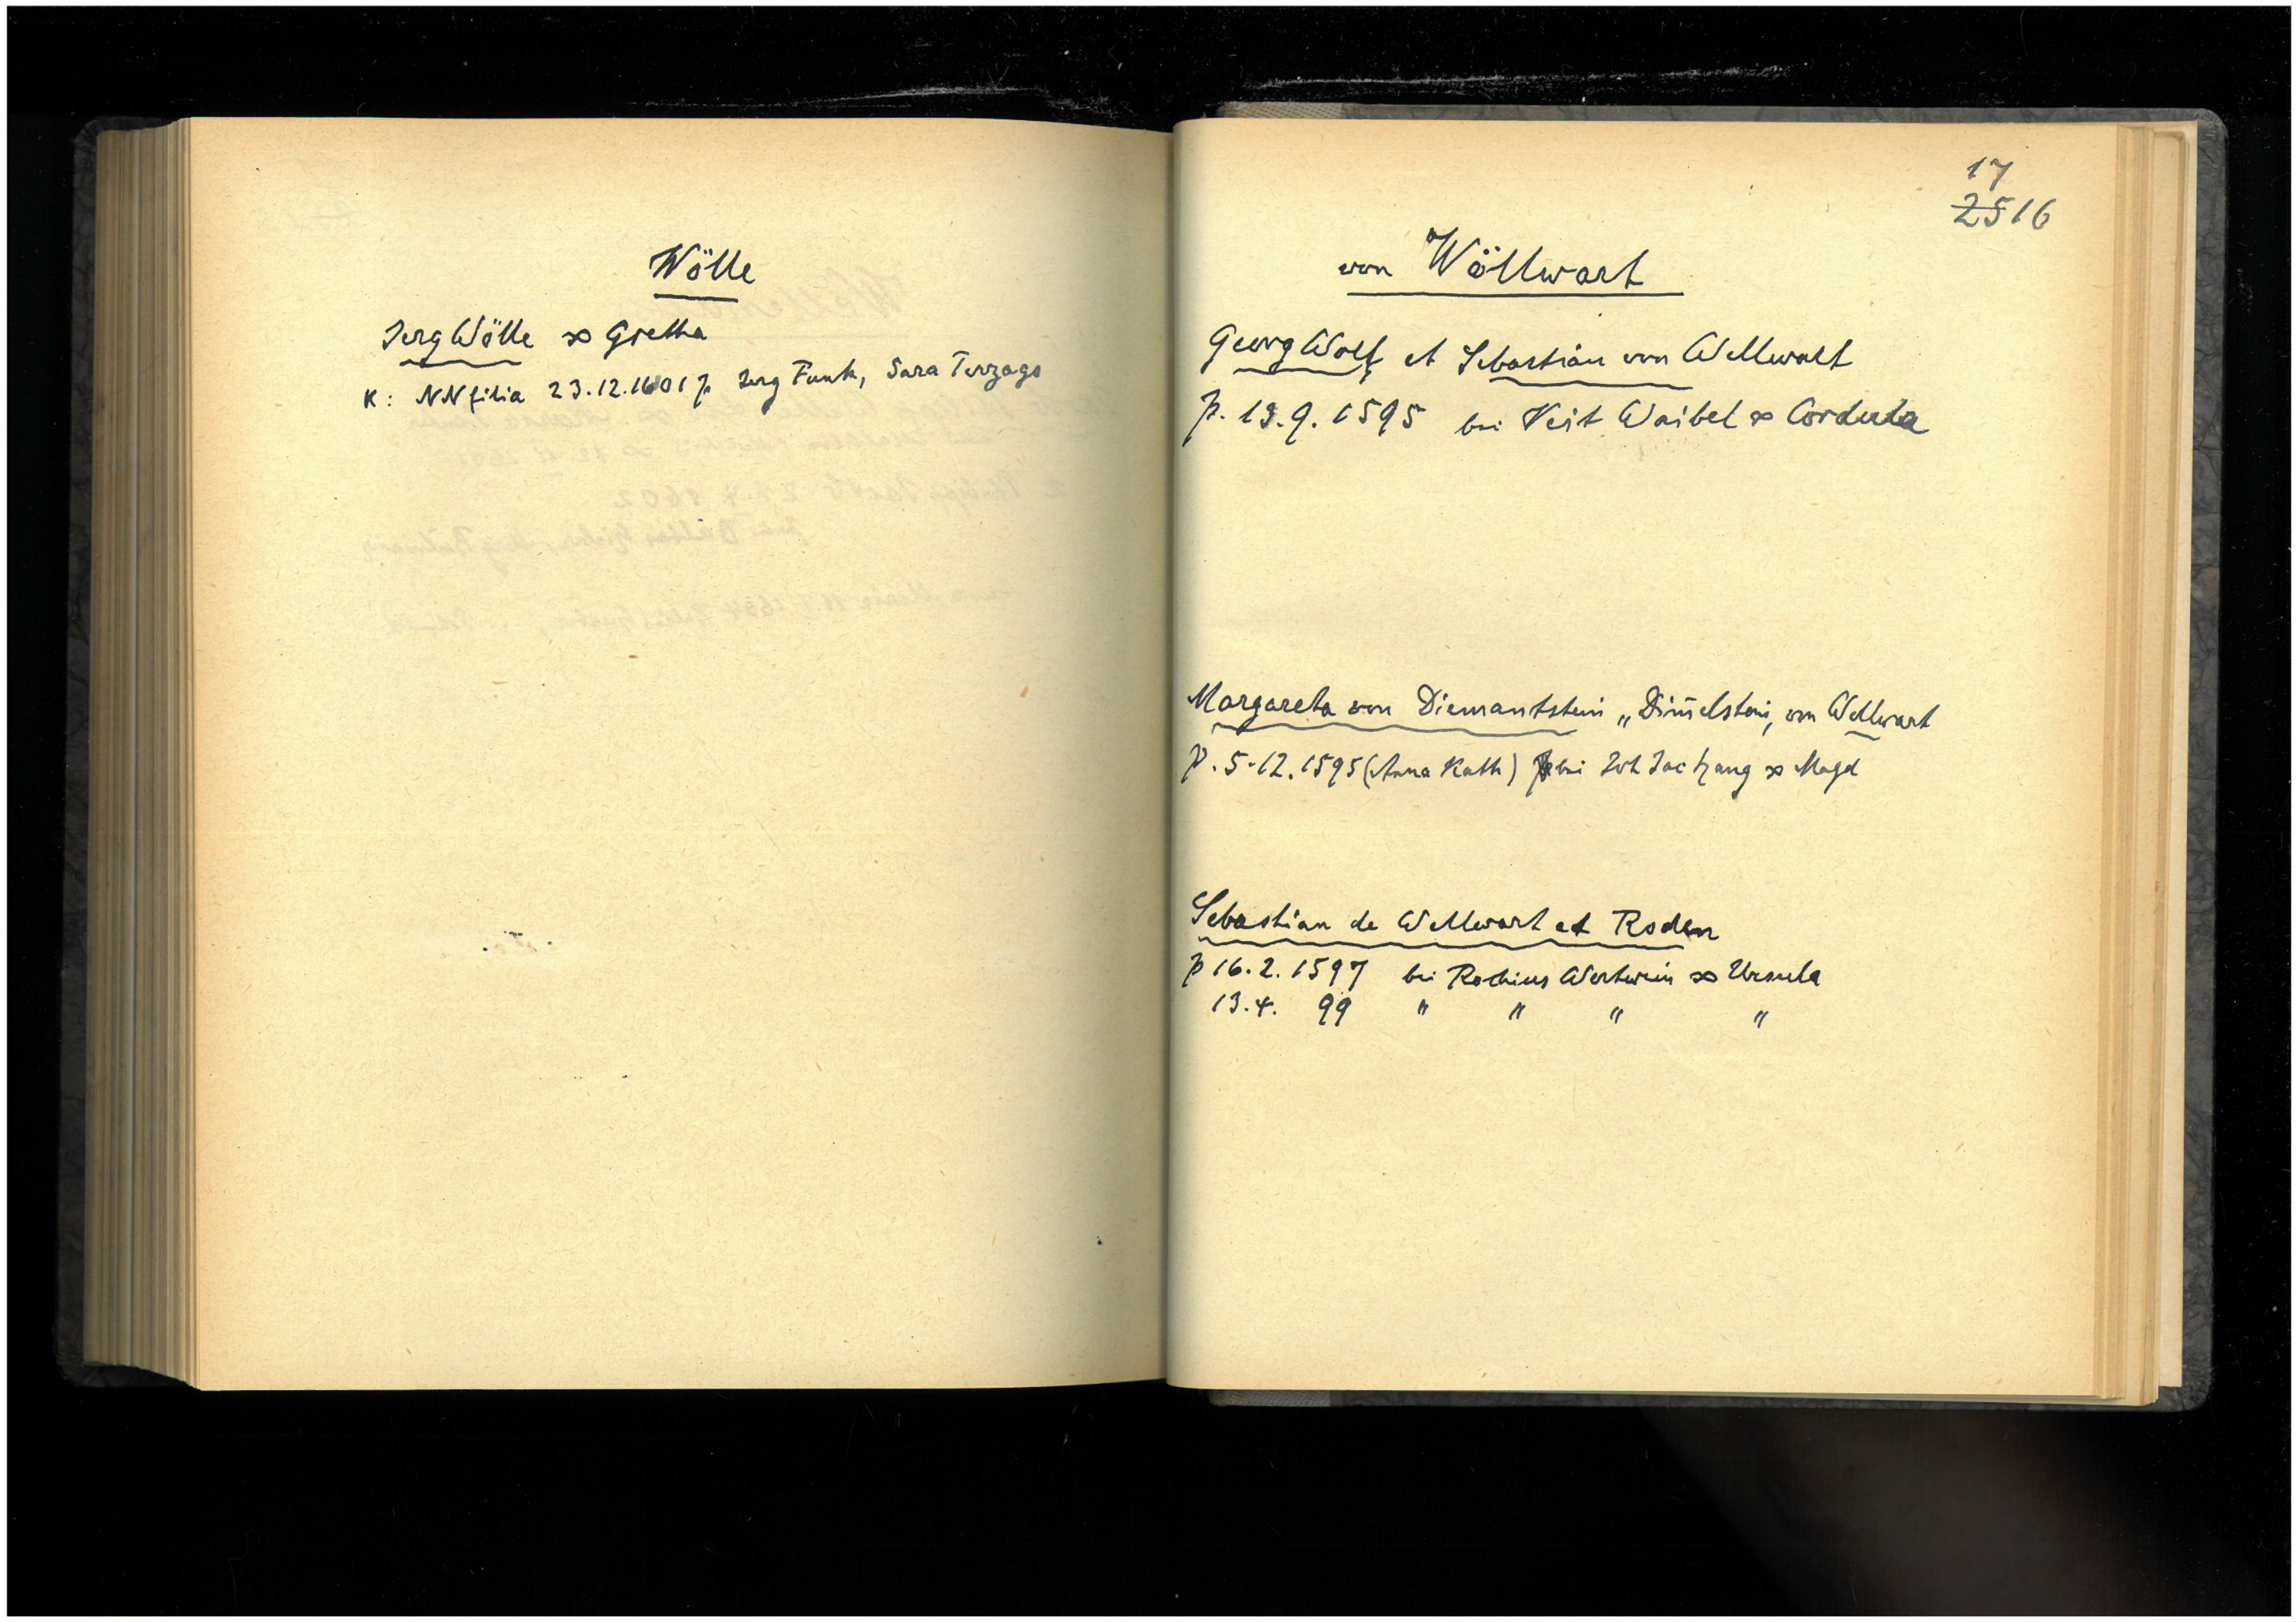 Wölle
Jerg Wölle ∞ Gretha
K: NN filia 23.12.1601 p Jerg Funk, Sara Terzago
17
2516
von Wöllwart
Georg Wolf et Sebastian von Wellwart
p. 13.9.1595 bei Veit Waibel ∞ Cordula
Margareta von Diemantstein „Dim̄elstein, von Wellwart
p. 5.12.1595 (Anna Kath) bei Joh Jac ∞ Magd
Sebastian de Wellwart et Roden
p 16.2.1597 bei Rochius Wertwein ∞ Ursula
13.4. 99 " " " "